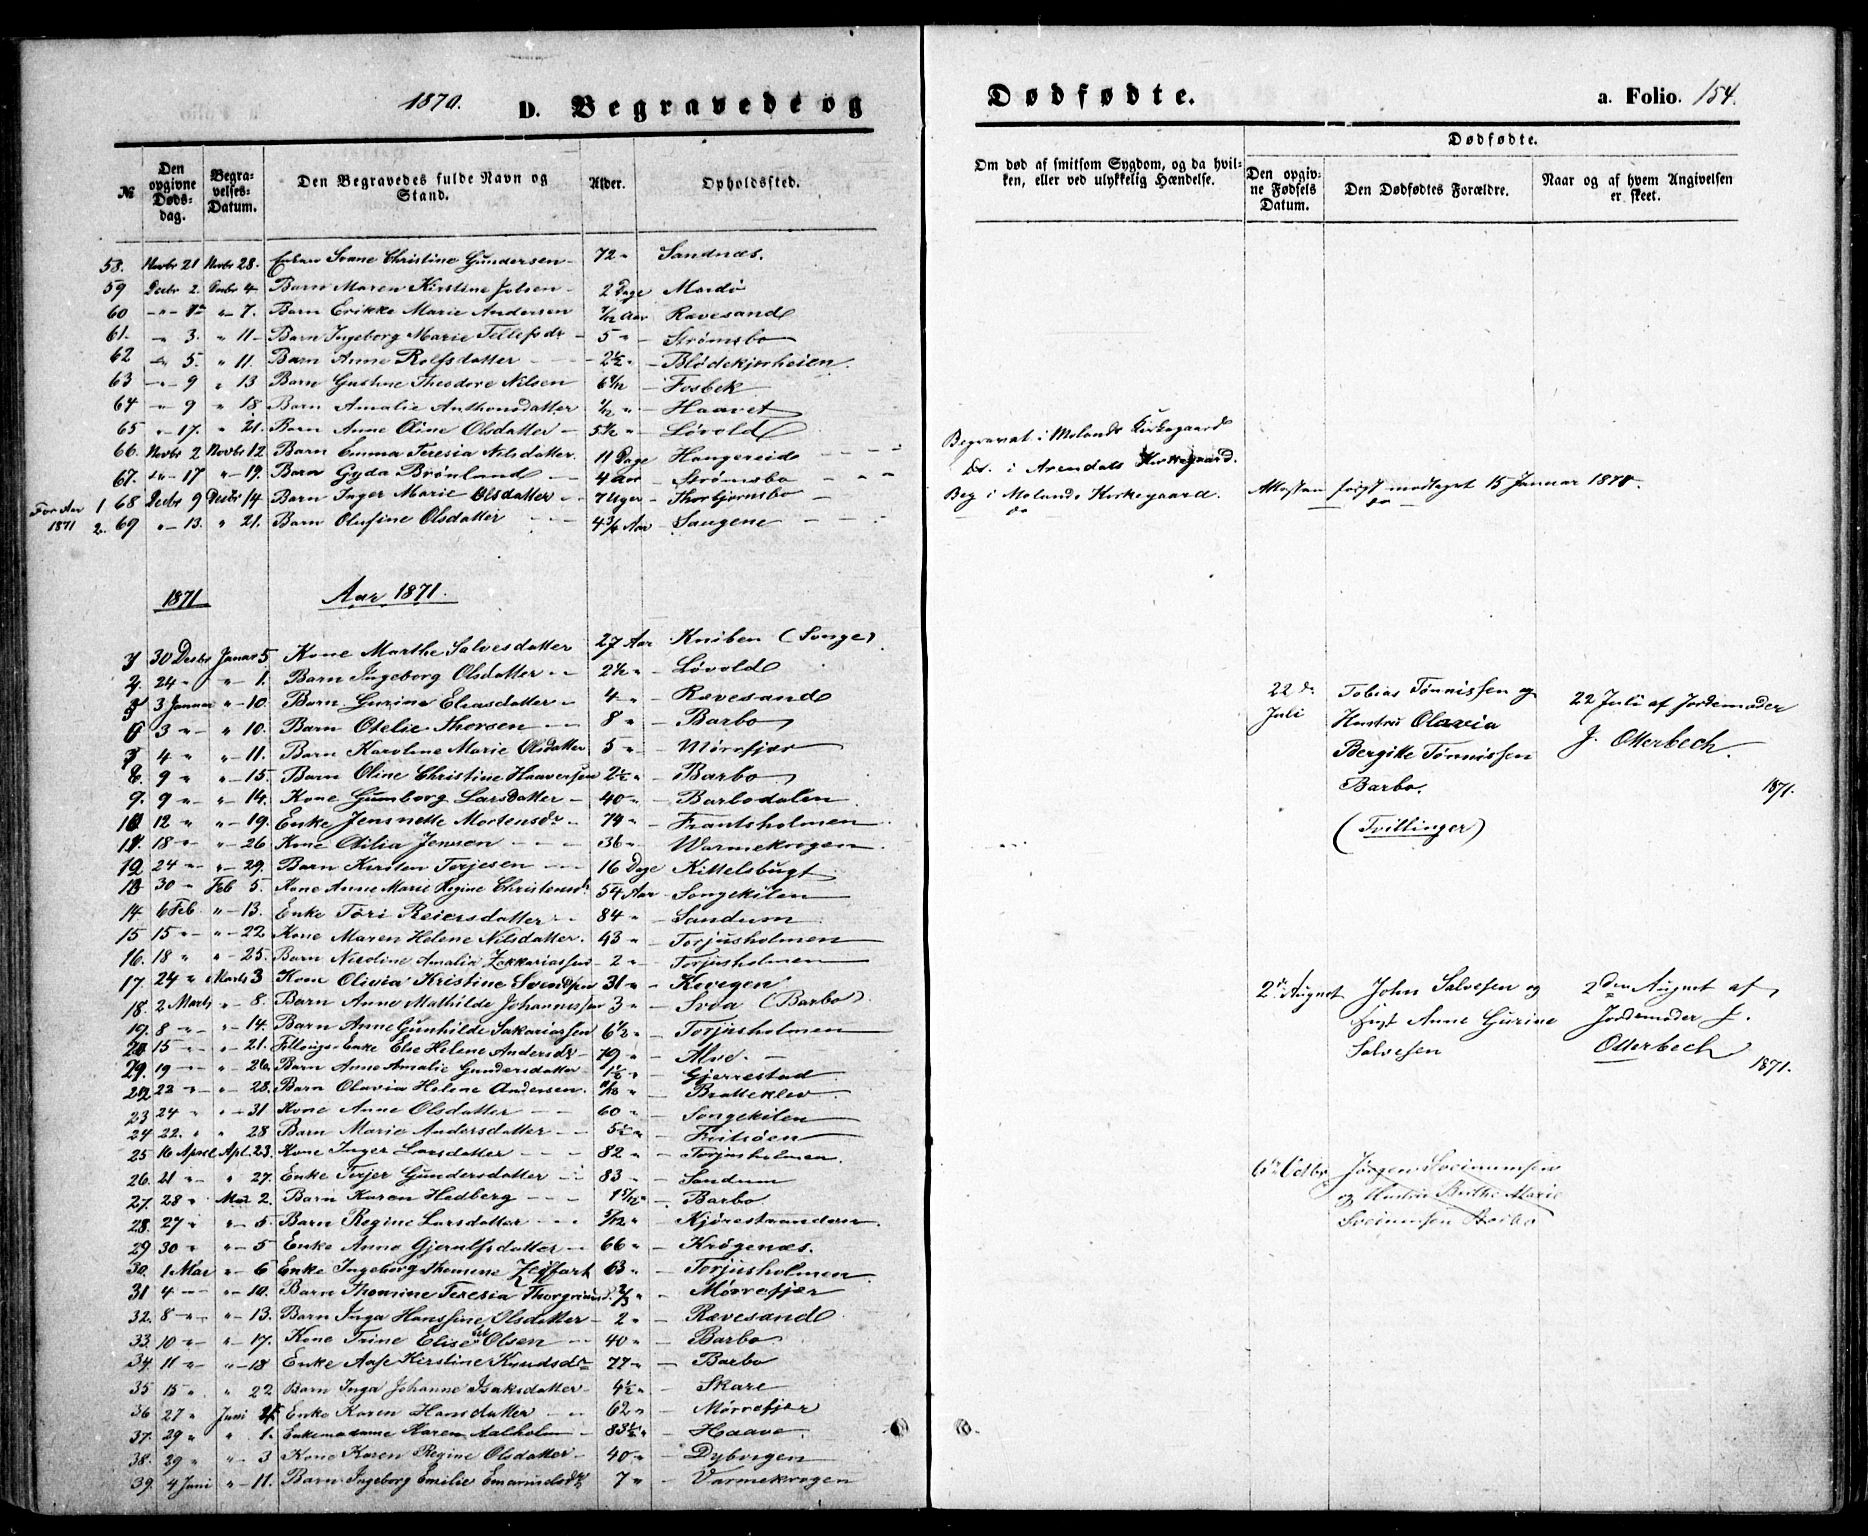 1870. D. Begravede og
№ Den opgivne Dødsdag. Begravelses-Datum. Den Begravedes fulde Navn og Stand. Alder. Opholdssted.
58. Novbr 21 Novbr 28. Svane Christine Gundersen 72 " Sandnæs.
59 Decbr 2. Decbr 4 Barn Maren Kirstine Jebsen 2 Dage Mærdø
60 " 7. Barn Erikke Marie Andersen 7/12 Aar Rævesand
61. " 3. " 11 Barn Ingeborg Marie Tellefsdr 5 " Strømsbo
62 " 5. " 11. Barn Anne Rolfsdatter 2½ Blødekjærheien.
63 " 9 " 13 Barn Theodore Nilsen Fosbek
64 " 9 " 18 Barn Amalie Anthonsdatter Haavet
65 " 17. " 21. Barn Anne Oline Olsdatter Løvold
66. Novbr 2 Novbr 12 Barn Emma Teresia Nilsdatter. 11 Dage Hangereid
67. " 17 " 19. Barn Gyda Brønland 4 Aar Strømsbo
For Aar 1 68 Decbr 9 Decbr 14. Barn Inger Marie Olsdatter 7 Uger Thorbjørnsbo
1871 2. 69 " 13. " 21. Barn Olufine Olsdatter 4¾ Aar Saugene
1871 Aar 1871.
3 30 Decbr Januar 5 Kone Marthe Salvesdatter 27 Aar Kniben (Songe)
24 " " 1. Barn Ingeborg Olsdatter Løvold
3 Januar " 10. Barn Gurine Eliasdatter 4 " Rævesand
3 " " 10. Barn Otelie Thorsen 8 " Barbo
4 " " 11. Barn Karoline Marie Olsdatter 5 " Mørrefjær
8. 9 " " 15. Barn Oline Christine Haaversen 2½ " Barbo
9. 9 " " 14. Kone Gumborg Larsdatter 40 " Barbodalen
10 12 " " 19. Enke Jensnette Mortensdr 74 " Frantsholmen
11. 18 " " 26 Kone Otilia Jensen 36 " Warmekrogen
12 24 " " 29. Barn Kirsten Terjesen 16 Dage Kittelsbugt
13 30 " Feb 5. Kone Anne Marie Regine Christensdr 54 Aar Songekilen
14. 6 Feb. " 13. Enke Tori Reiersdatter 84 " Sandum
15 15 " " 22 Kone Maren Helene Nilsdatter. 43 " Torjusholmen
16. 18 " " 25. Barn Nicoline Amalia Zakkariassen 2 " Torjusholmen
17. 24 " Marts 3 Kone Olivia Kristine Svendsen 31 " Kovegen
18. 2 Marts " 8. Barn Anne Mathilde Johannessen 3 " Svoa (Barbo).
19. 8 " " 14. Barn Anne Gunhilde Sakariassen 6½ " Torjusholmen
20 15 " " 21. Enke Else Helene Andersdr 79 " Alve.
19 " " 26. Barn Anne Amalie Gundersdatter Gjerrestad
22 22 " " 28. Barn Olavia Helene Andersen. Bratteklev
23 24 " " 31. Kone Anne Olsdatter 60 " Songekilen
24 22. " " 28 Barn Marie Andersdatter 5½ " Fritsøen
25 16 April Apl. 23. Kone Inger Larsdatter 82 " Torjusholmen
26. 21 " " 27. Enke Terjer Gundersdatter 83 Sandum
27. 28 " Mai 2. Barn Karen Hedberg Barbo
28. 27 " " 5. Barn Regine Larsdatter Kjørestranden
29 30 " " 5 Enke Anne Gjerulfsdatter 66 " Krøgenæs.
30. 1 Mai " 6 Enke Ingeborg Themine Zeiffart 63 " Torjusholmen
31 4 " " 10. Barn Thomine Teresia Mørrefjær
32. 8 " " 13. Barn Inga Hanssine Olsdatter 2 " Rævesand
33. 10 " " 17. Kone Trine Elise Olsen 40 " Barbo
34. 11 " " 18 Enke Aase Kirstine Knudsdr 77 " Barbo
35 15 " " 22 Barn Inga Johanne Isaksdatter 4½ " Skare
36 27 " Juni Enke Karen Hansdatter 62 " Mørrefjær
37. 29 " " 1. Enkemadame Karen Aalholm 83½ " Haave
38. 29 " " 3 Kone Karen Regine Olsdatter 40 " Dybvigen
39. 4 Juni " 11. Barn Ingeborg Emilie Emanuelsdr 7 " Varmekrogen
Dødfødte. a. Folio. 154.
Om død af smitsom Sygdom, og da hvilken, eller ved ulykkelig Hændelse. Dødfødte. Den opgivne Fødsels Datum. Den Dødfødtes Forældre. Naar og af hvem Angivelsen er skeet.
Begravet i Molands Kirkegaard
Do. i Arendals Kirkegaard.
Beg i Molands Kirkegaard. Attesten først modtaget 15 Januar 1871.
do do
22 de Juli Tobias Tønnissen og Hustru Olavia Bergitte Tønnissen Barbo. (Tvillinger) 22 Juli af Jordemoder J. Otterbech. 1871.
2 August John Salvesen og Hust Anne Gurine Salvesen 2 den August af Jordemoder J. Otterbech 1871.
6 Octbr Jørgen Sveinumsen og Hustru Berthe Marie Sveinumsen Barbo